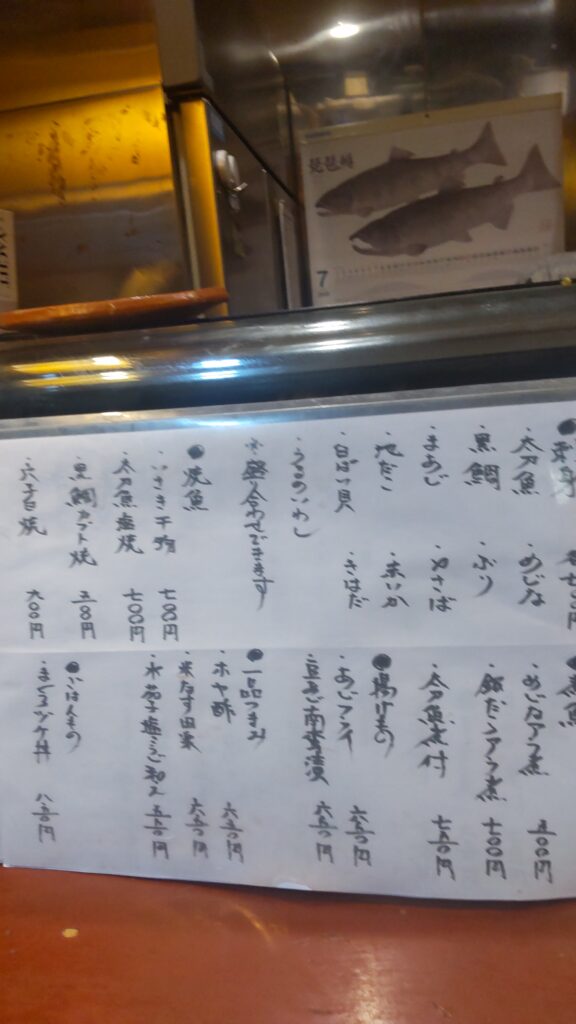 琵琶鱒
7
刺身 各七〇〇円
・太刀魚 ・めじな
・黒鯛 ・ぶり
・まあじ ・〆さば
・地だこ ・赤いか
・白ばい貝 ・きはだ
・うるめいわし
※盛合わせできます
●焼魚
・いさき干物 七〇〇円
・太刀魚塩焼 七〇〇円
・黒鯛カブト焼 五八〇円
・穴子白焼 九〇〇円
●煮魚
・めじなアラ煮 五〇〇円
・銀だらアラ煮 七〇〇円
・太刀魚煮付 七五〇円
●揚げもの
・あじフライ 六五〇円
・豆あじ南蛮漬 六五〇円
●一品つまみ
・ホヤ酢 六五〇円
・米なす田楽 六五〇円
・水茄子塩こんぶ和え 五五〇円
●ごはんもの
・まぐろヅケ丼 八五〇円